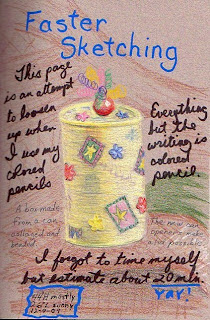 Faster
Sketching
This page
is an attempt
to loosen
up when
I use my
colored
pencils
Everything
but the
writing is
colored
pencil.
A box made
from a can,
I forgot to time myself
but estimate about 20 min.
YAY!